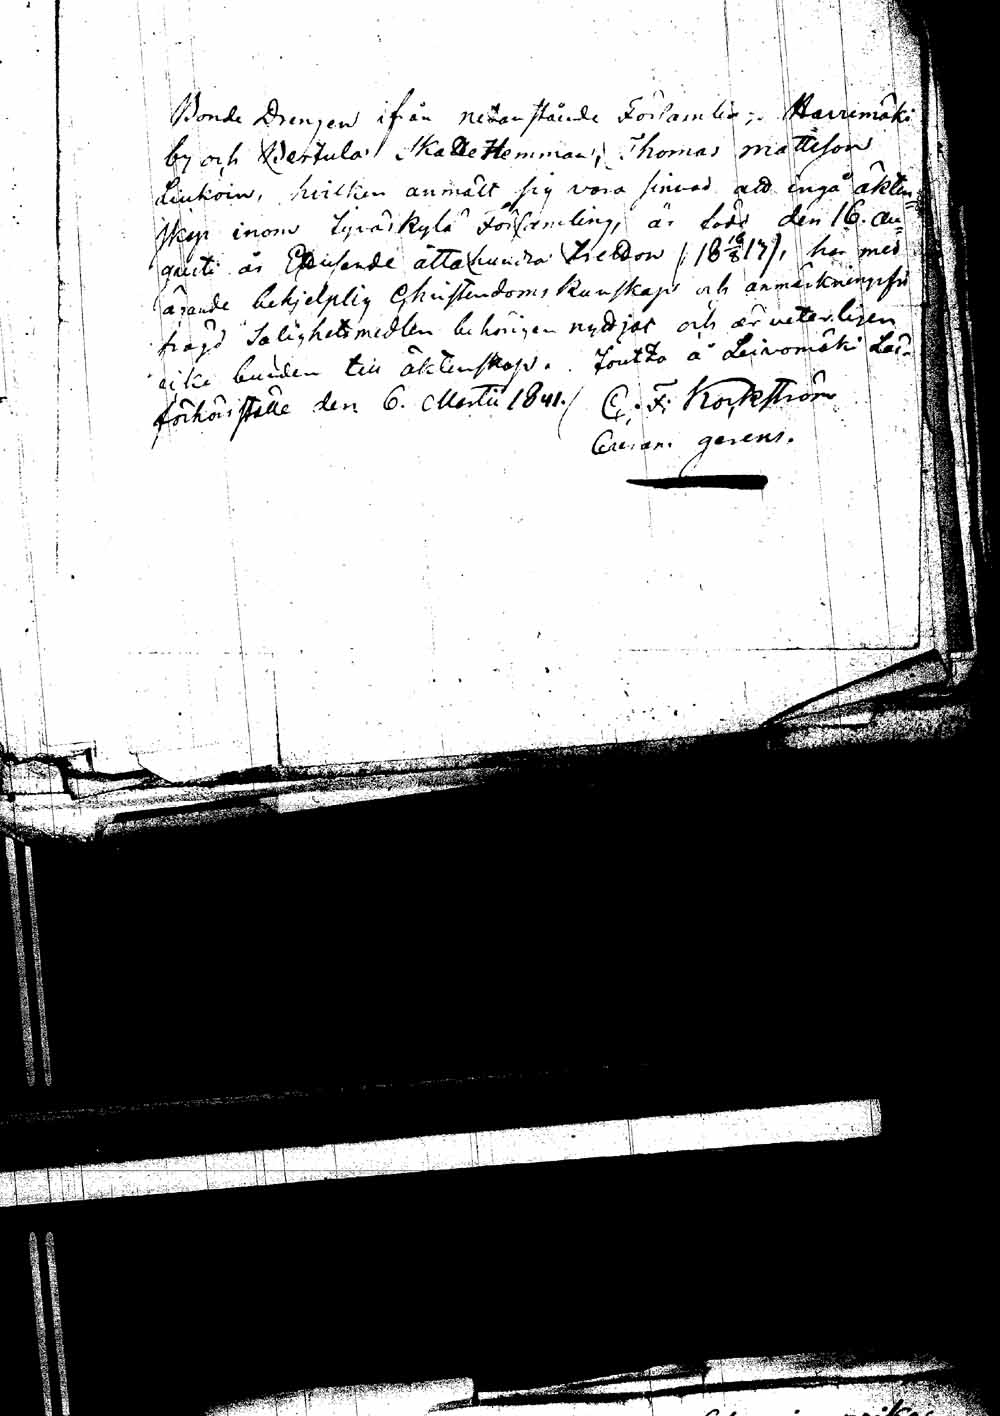 Bonde Drengen ifrån nedanstående Församling, Harrimäki
by och Pertula Skatte Hemman, Thomas Mattsson
Liukoin, hvilken anmält sig vara sinnad att ingå äkten-
skap inom Jyväskylä Församling, är född den 16. Au-
gusti år Ettusende åttahundra Sjutton (18 16/8 17), har med
ärande behjelplig Christendoms Kunskap och anmärkningsfri
frägd Salighetsmedlen behörigen nyttjat och är veterligen
icke bunden till äktenskap. Joutza å Leivomäki Läs-
förhörsställe den 6. Martii 1841./ C. F. Kockström
gerens.